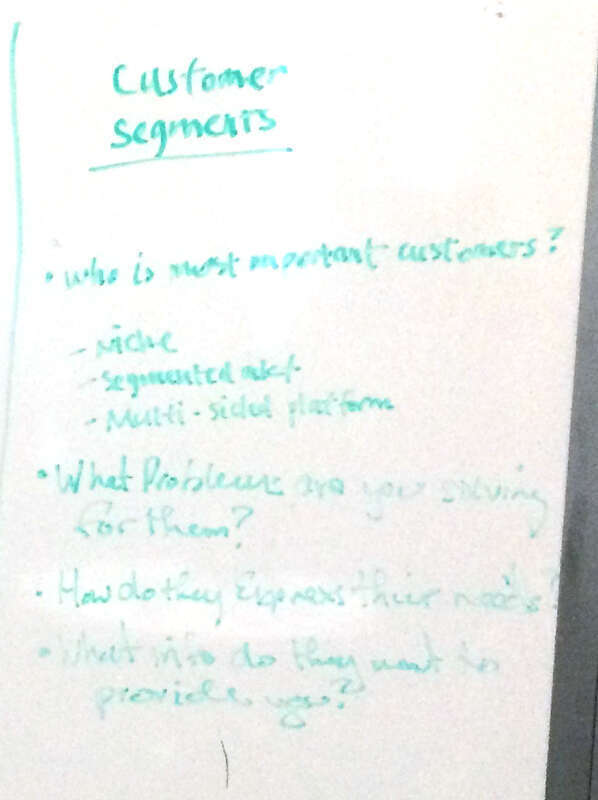 Customer
Segments
• who is most important customers?
- Niche
- Segmented mkt
- Multi-sided platform
• What Problems are you solving
for them?
• How do they Express their needs?
• What info do they want to
provide you?